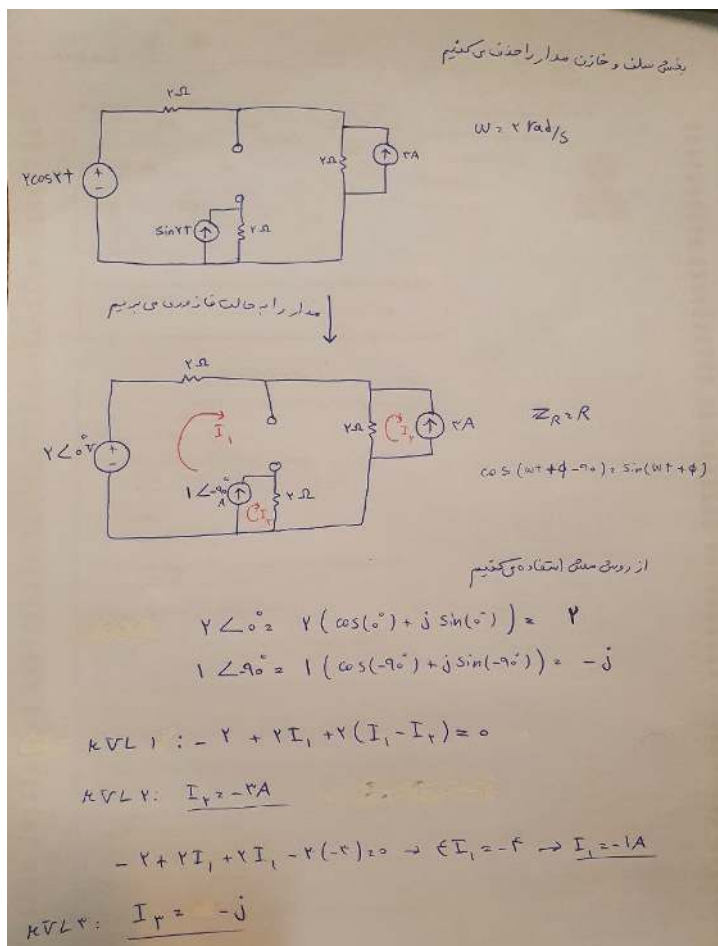 بخش سلف و خازن مدار را حذف می کنیم
۲Ω
ω = ۲ rad/s
۲cos۲t
+
-
۲Ω
۳A
sin۲t
۲Ω
مدار را به حالت فازوری می بریم
۲Ω
۲∠۰°v
+
-
I₁
۲Ω
I₂
۳A
Z_R = R
cos(ωt + φ - ۹۰) = sin(ωt + φ)
۱∠-۹۰°
A
I₃
۲Ω
از روش مش استفاده می کنیم
۲∠۰° = ۲(cos(۰°) + j sin(۰°)) = ۲
۱∠-۹۰° = ۱(cos(-۹۰°) + j sin(-۹۰°)) = -j
KVL ۱ : - ۲ + ۲I₁ + ۲(I₁ - I₂) = ۰
KVL ۲: I₂ = -۳A
- ۲ + ۲I₁ + ۲I₁ - ۲(-۳) = ۰ → ۴I₁ = -۴ → I₁ = -۱A
KVL ۳: I₃ = -j